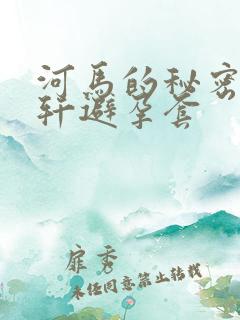 河马的秘密
轩避孕套
扉秀
未经同意禁止转载